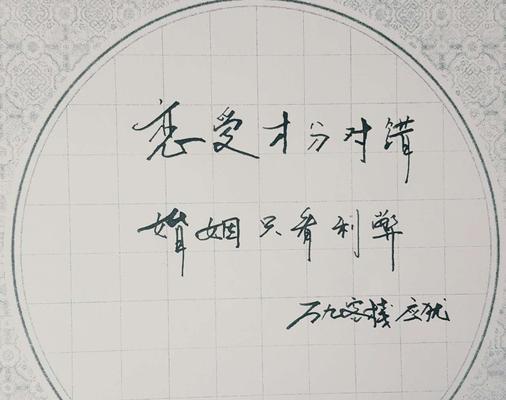 恋爱才分对错
婚姻只看利弊
万九客栈 应犹